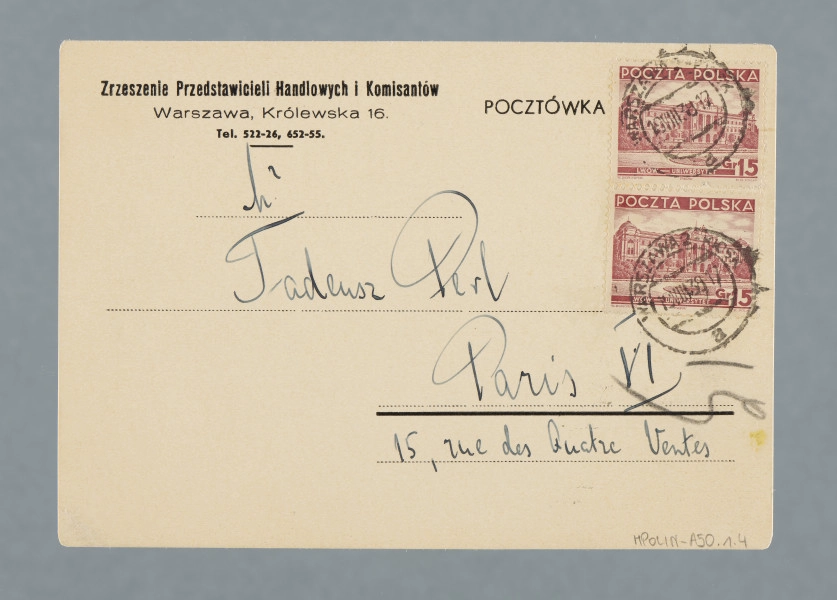 Zrzeszenie Przedstawicieli Handlowych i Komisantów
Warszawa, Królewska 16.
Tel. 522-26, 652-55.
POCZTÓWKA
POCZTA POLSKA
LWÓW UNIWERSYTET
Gr 15
POCZTA POLSKA
LWÓW UNIWERSYTET
Gr 15
WARSZAWA 2
a
WARSZAWA 2
a
Mr
Tadeusz Perl
Paris VI
15, rue des Quatre Ventes
MPOLIN-A50.1.4